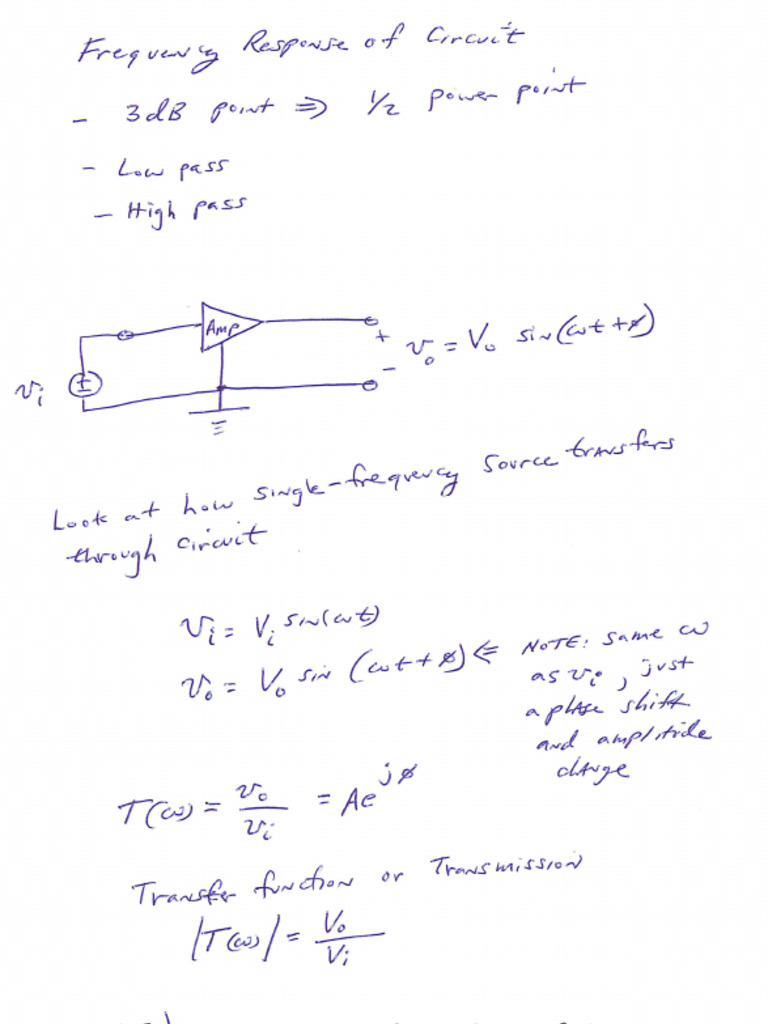 Frequency Response of Circuit
- 3dB point ⇒ 1/2 power point
- Low pass
- High pass
Amp
+
vₒ = Vₒ sin(ωt + ϕ)
-
vᵢ
±
Look at how single-frequency source transfers
through circuit
vᵢ = Vᵢ sin(ωt)
vₒ = Vₒ sin(ωt + ϕ) ⇐ NOTE: same ω
as vᵢ, just
a phase shift
and amplitude
change
T(ω) = vₒ/vᵢ = Ae^jϕ
Transfer function or Transmission
|T(ω)| = Vₒ/Vᵢ